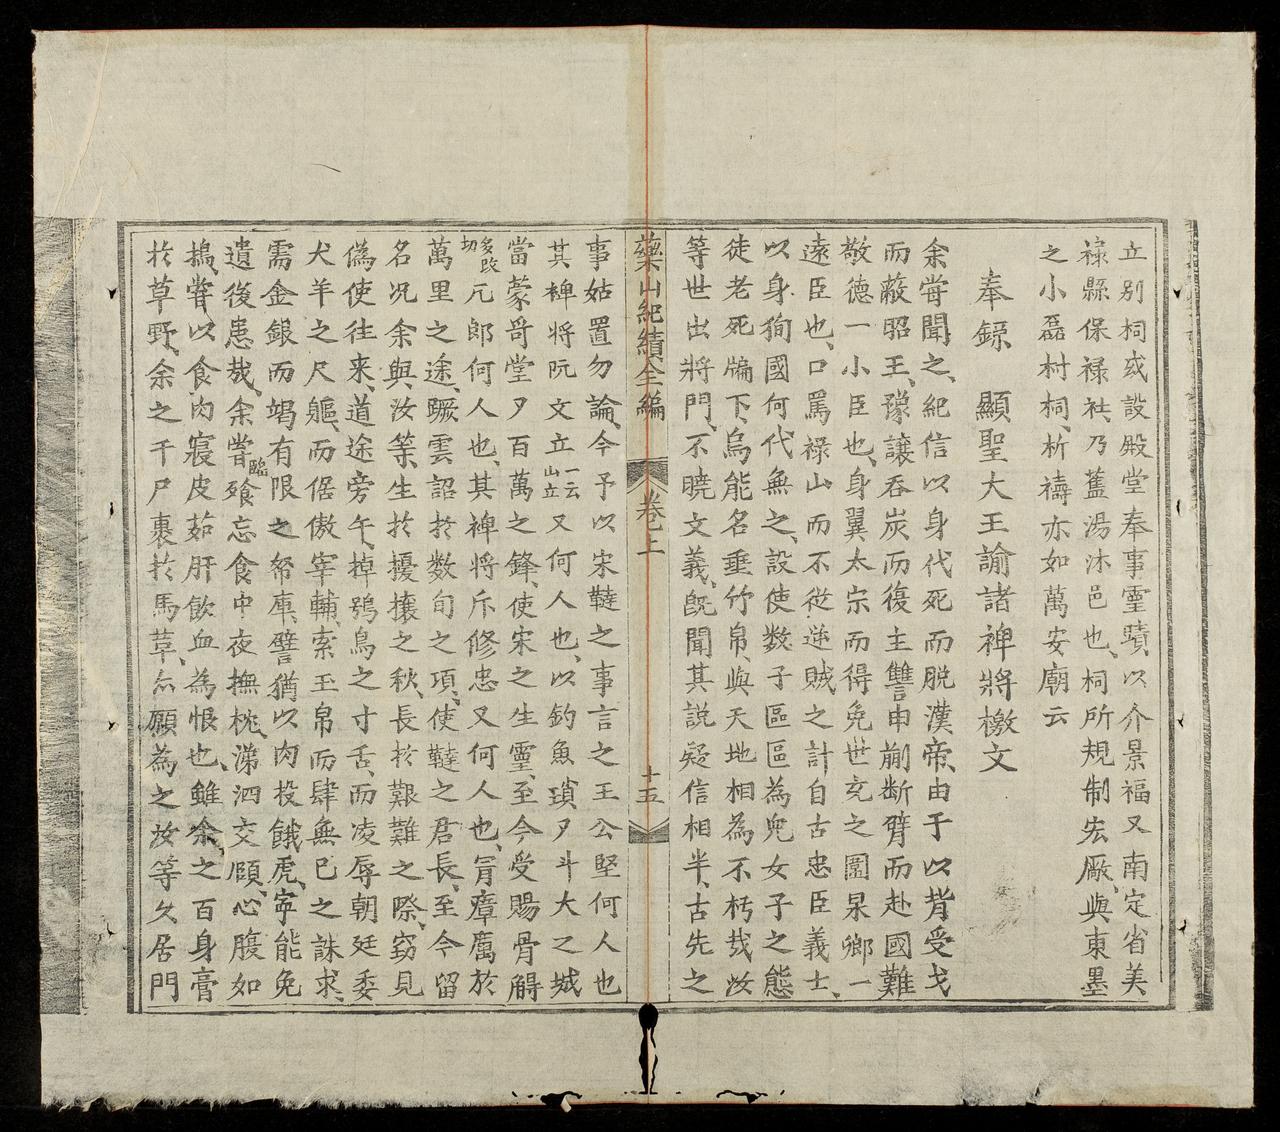 立別祠或設殿堂奉事𤫊蹟以介景福又南定省美
祿縣保祿社乃舊湯沐邑也祠所規制宏厰與東墨
之小磊村祠祈禱亦如萬安廟云
奉錄 顯聖大王諭諸裨將檄文
余甞聞之紀信以身代死而脱漢帝由于以背受戈
而蔽昭王豫讓吞炭而復主讐申蒯断臂而赴國難
敬德一小臣也身翼太宗而得免世充之圍杲鄉一
遠臣也口罵祿山而不從逆賊之計自古忠臣義士
以身狥國何代無之設使数子區區為兒女子之態
徒老死牖下烏能名垂竹帛與天地相為不朽㢤汝
等世出將門不曉文義旣聞其説疑信相半古先之
藥山紀績全編 卷上 十五
事姑置勿論今予以宋韃之事言之王公堅何人也
其裨将阮文立一云山立又何人也以釣魚瑣夕斗大之城
當蒙哥堂夕百萬之鋒使宋之生𤫊至今受賜骨䚟
多改切兀郎何人也其裨將斤修忠又何人也冐瘴厲於
萬里之途蹶雲詔於数旬之項使韃之君長至今留
名况余與汝等生於擾攘之秋長於艱難之際窃見
偽使往来道途旁午掉鴞鳥之寸舌而凌辱朝廷委
犬羊之尺軀而倨傲宰輔索玉帛而肆無已之誅求
需金銀而竭有限之帑庫譬猶以肉投餓虎寕能免
遺後患㢤余甞臨飱忘食中夜撫枕涕泗交頥心腹如
搗甞以食肉寢皮茹肝飲血為恨也雖余之百身膏
於草野余之千尸裹於馬革亦願為之汝等久居門